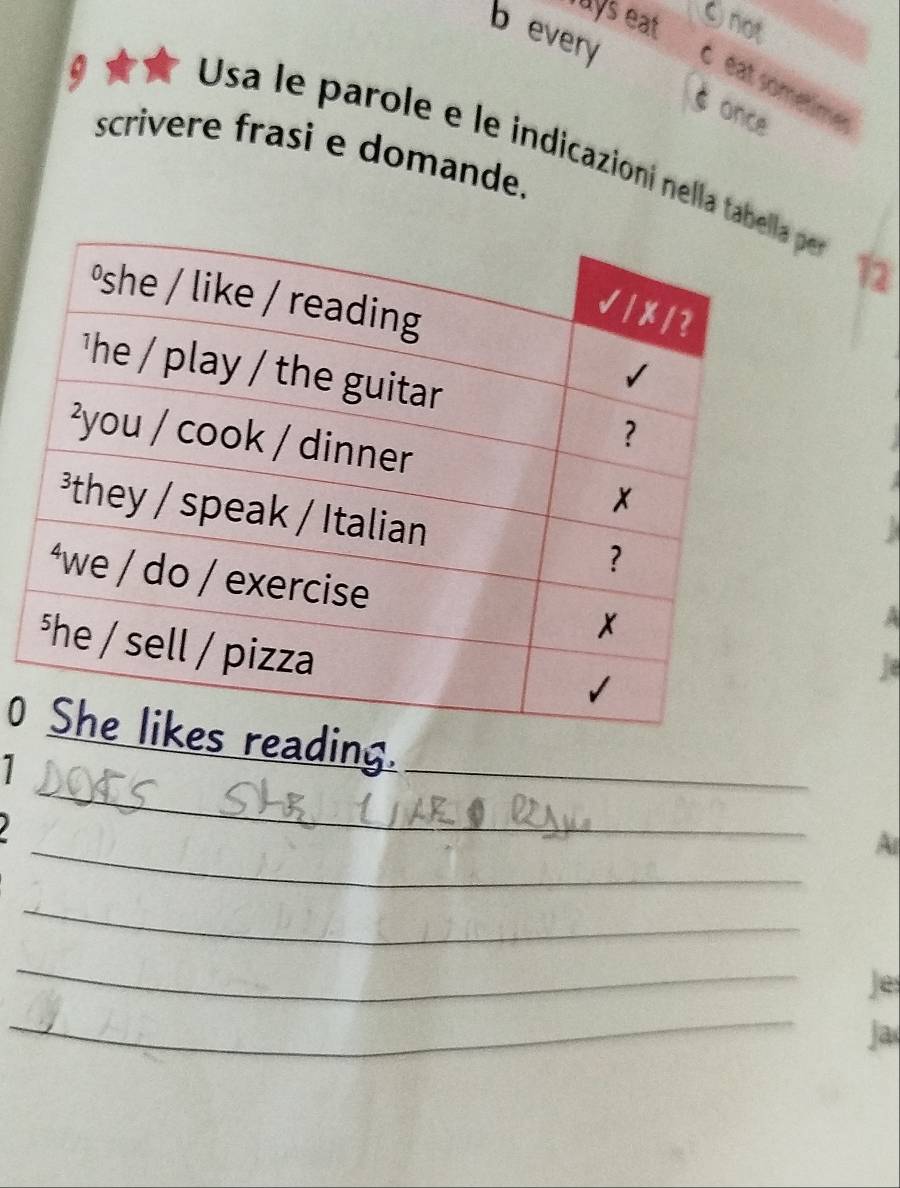 ays eat
c not
b every
c eat sometimes
c once
9 ★★ Usa le parole e le indicazioni nella tabella per
scrivere frasi e domande.
12
✓ / ✗ / ?
⁰she / like / reading ✓
¹he / play / the guitar ?
²you / cook / dinner ✗
³they / speak / Italian ?
⁴we / do / exercise ✗
⁵he / sell / pizza ✓
0 She likes reading.
1 DOES SHE LIKE
2